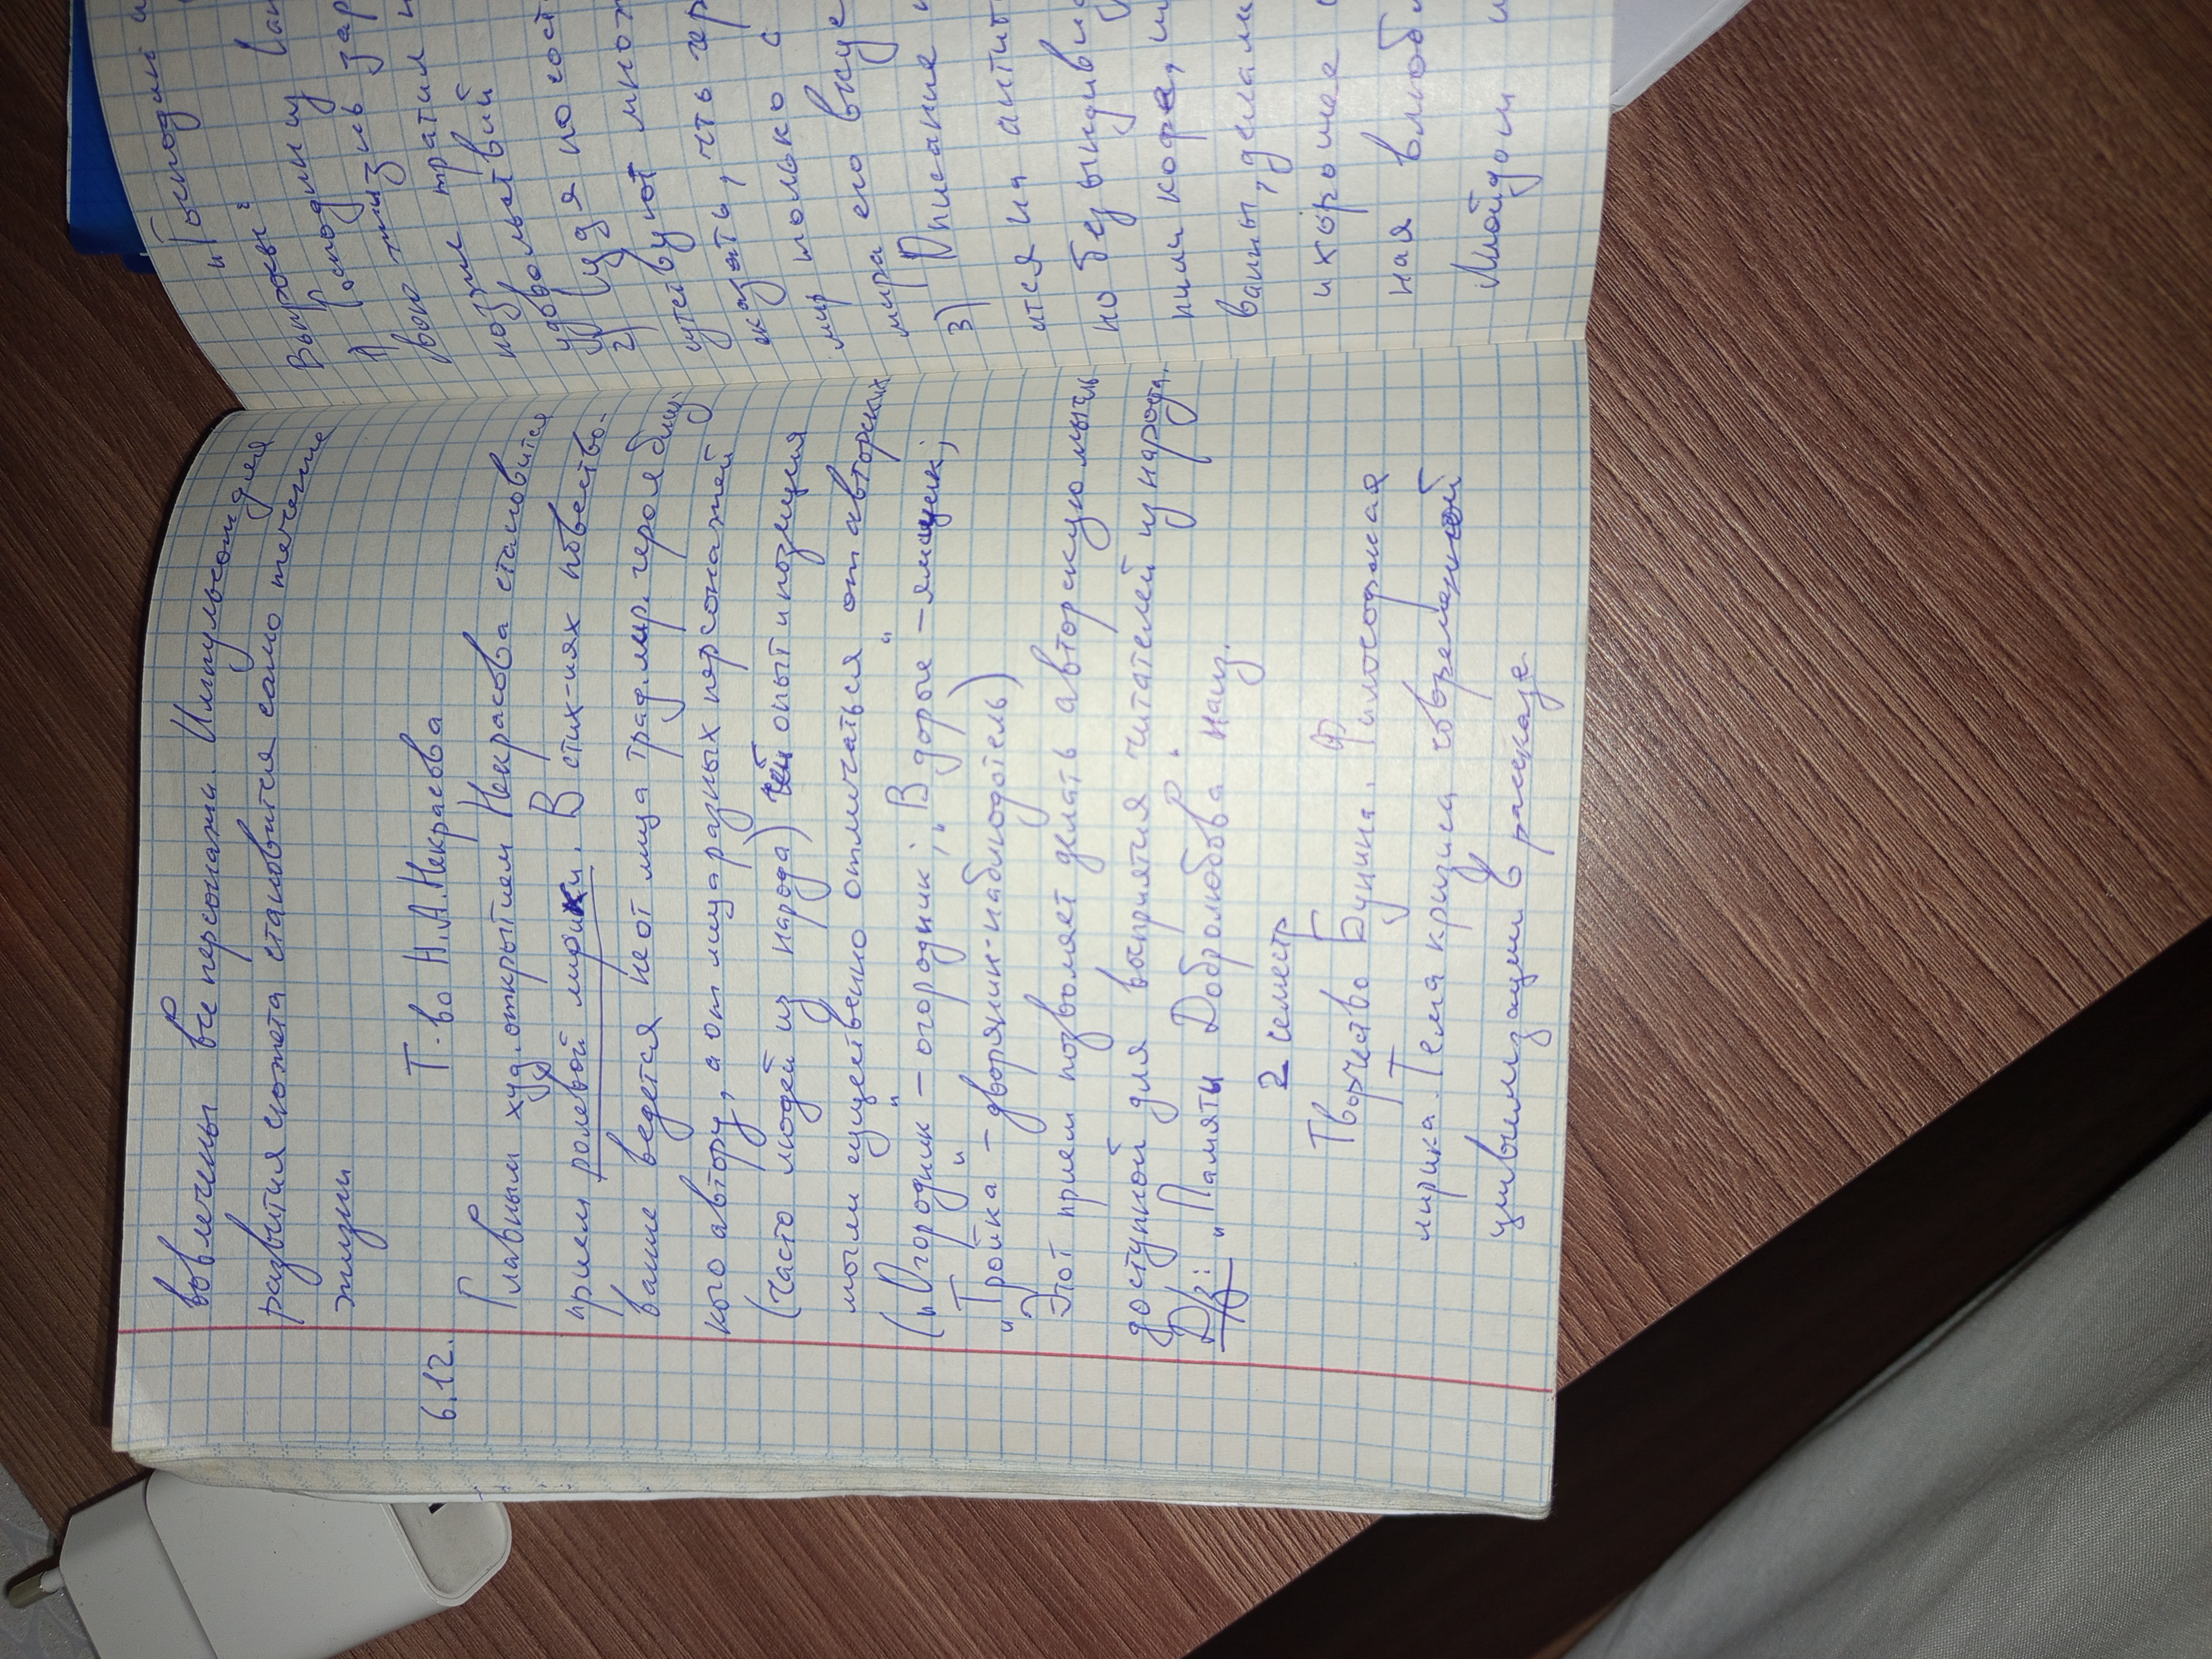 вовлечены все персонажи. Импульсом для
развития сюжета становится само течение
жизни
6.12. Т-во Н.А.Некрасова
Главным худ. открытием Некрасова становится
прием ролевой лирики. В стих-иях повество-
вание ведется не от лица трад. лир. героя близ-
кого автору, а от лица разных персонажей
(часто людей из народа) чей опыт и позиция
могли существенно отличаться от авторских
(„Огородник" – огородник; „В дороге" – ямщик;
„Тройка" – дворянин-наблюдатель)
Этот прием позволяет делать авторскую мысль
доступной для восприятия читателей из народа.
Д/з: „Памяти Добролюбова" наиз.
2 семестр
Творчество Бунина. Философская
лирика. Тема кризиса современной
цивилизации в рассказе
„Господин и
Вопросы:
1) Господин из Сан
жизнь зар
вот тратил и
позволь
удовольствий
2) Судя по
сутствуют множ
сказать, что гер
только с
мир его вку
мира
3) Описание
ится на антит
но безвындивид
пили кофе, ш
ванны, делали
и хорошее
ная влюбл
Ллойдом и